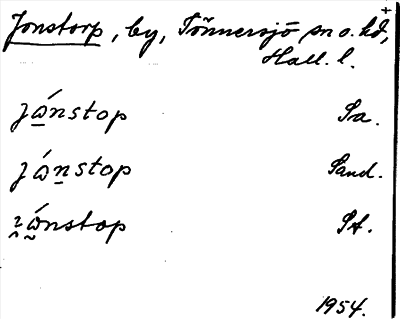 Jonstorp, by, Tönnersjö sn o. hd,
Hall. l.
jώnstop Sa.
jώn̲stop Sand.
ώnstop St.
1954.